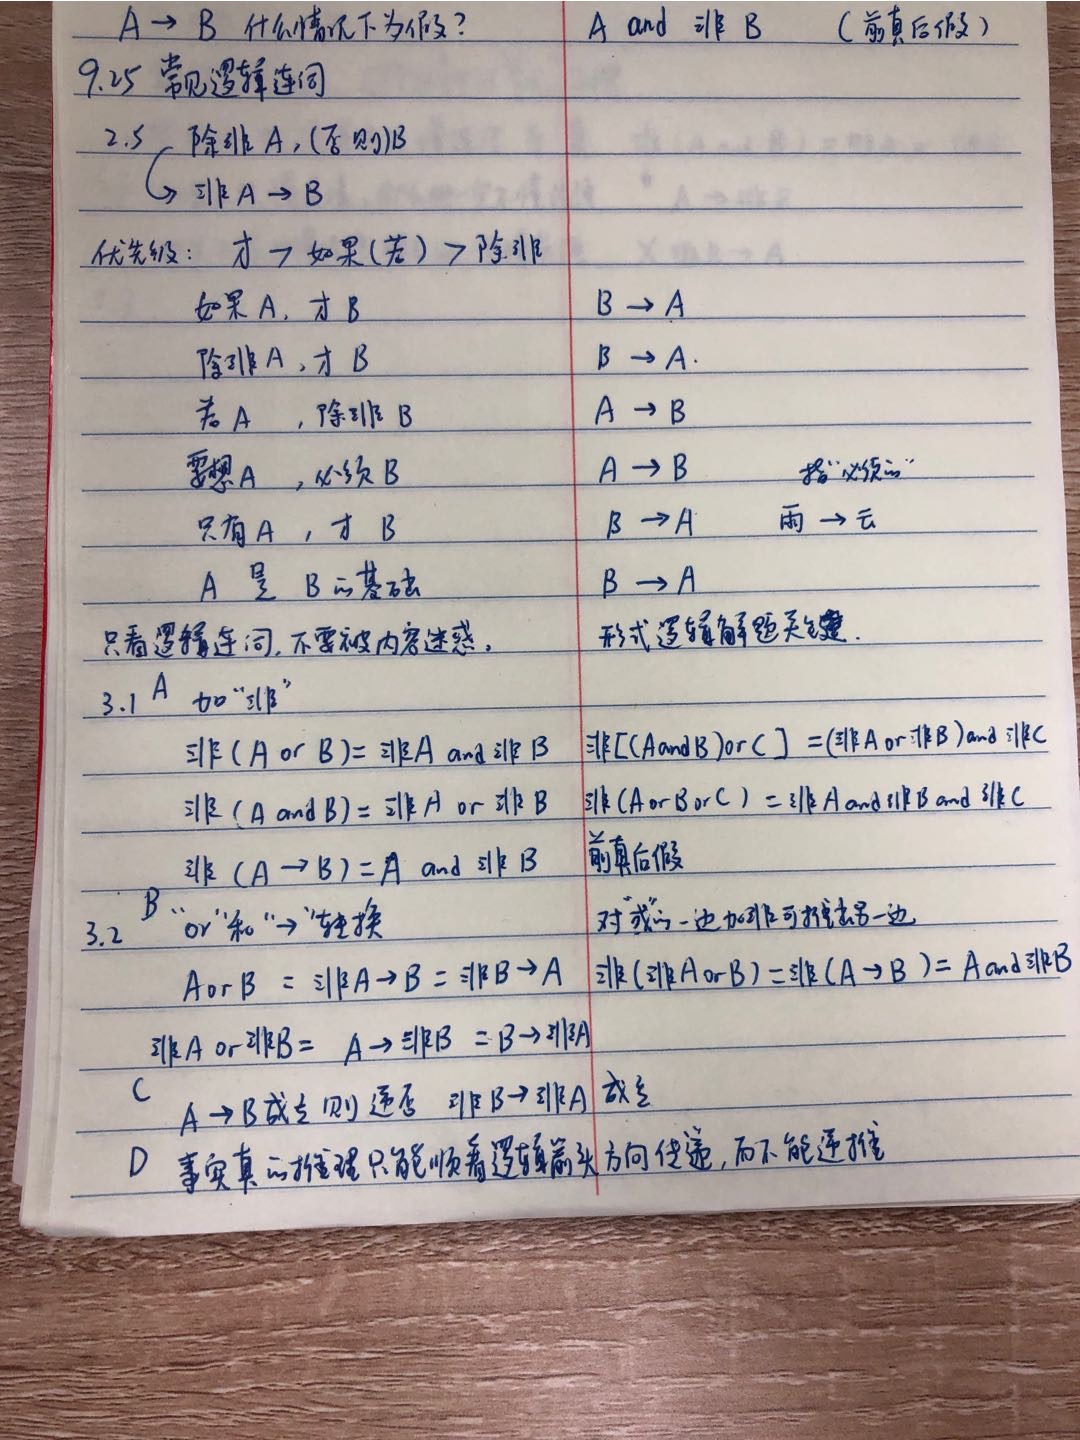 A → B 什么情况下为假? A and 非 B (前真后假)
9.25 常见逻辑连词
2.5 除非A,(否则)B
非A → B
优先级: 才 > 如果(若) > 除非
如果 A, 才 B B → A
除非A, 才 B B → A.
若 A , 除非 B A → B
要想A , 必须 B A → B 指"必须的"
只有 A , 才 B B → A 雨 → 云
A 是 B的基础 B → A
只看逻辑连词, 不要被内容迷惑. 形式逻辑解题关键.
3.1 A 加"非"
非(A or B)= 非A and 非 B 非[(A and B) or C] =(非A or 非B) and 非C
非(A and B)= 非A or 非 B 非(A or B or C) = 非A and 非B and 非C
非(A → B)= A and 非 B 前真后假
3.2 B "or"和"→"转换 对"或"的一边加非可推出另一边
A or B = 非A → B = 非B → A 非(非A or B)=非(A → B)= A and 非B
非A or 非B = A → 非B = B → 非A
C A → B成立则逆否 非B → 非A 成立
D 事实真的推理只能顺着逻辑箭头方向传递, 而不能逆推